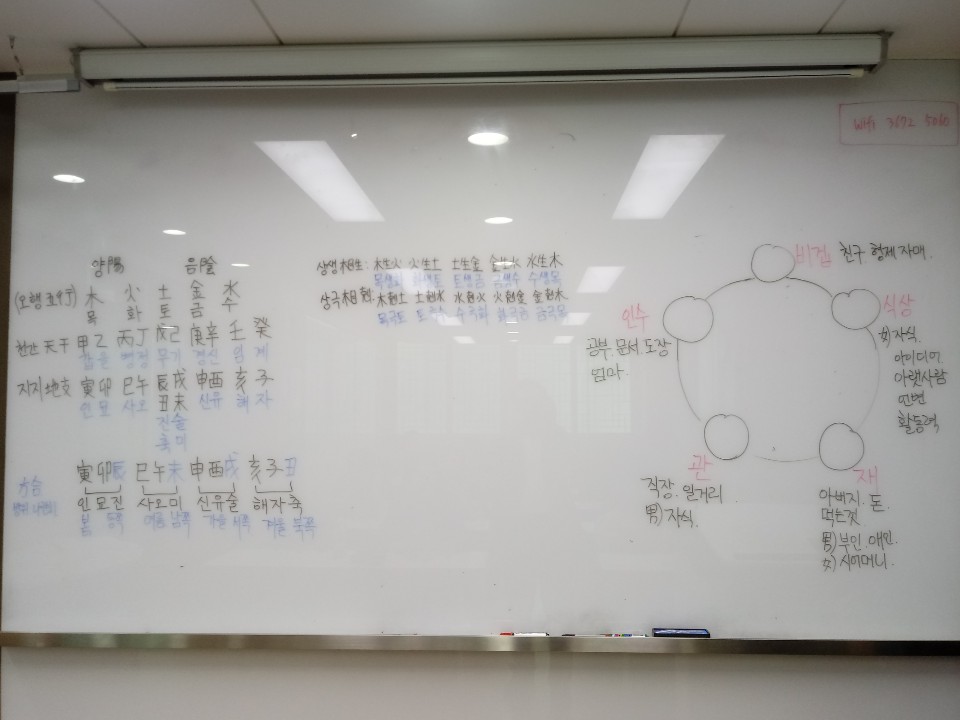 Wifi 3672 5060
양陽 음陰
(오행 五行) 木 火 土 金 水
목 화 토 금 수
천간 天干 甲乙 丙丁 戊己 庚辛 壬癸
갑을 병정 무기 경신 임계
지지 地支 寅卯 巳午 辰戌 申酉 亥子
丑未
인묘 사오 신유 해자
진술
축미
方合 寅卯辰 巳午未 申酉戌 亥子丑
인묘진 사오미 신유술 해자축
봄 동쪽 여름 남쪽 가을 서쪽 겨울 북쪽
상생 相生: 木生火 火生土 土生金 金生水 水生木
목생화 화생토 토생금 금생수 수생목
상극 相剋: 木剋土 土剋水 水剋火 火剋金 金剋木
목극토 토극수 수극화 화극금 금극목
비겁 친구 형제 자매.
식상
女) 자식.
아이디어.
아랫사람
언변
활동력
재
아버지. 돈.
먹는것
男) 부인. 애인.
女) 시어머니.
관
직장. 일거리
男) 자식.
인수
공부. 문서. 도장
엄마.